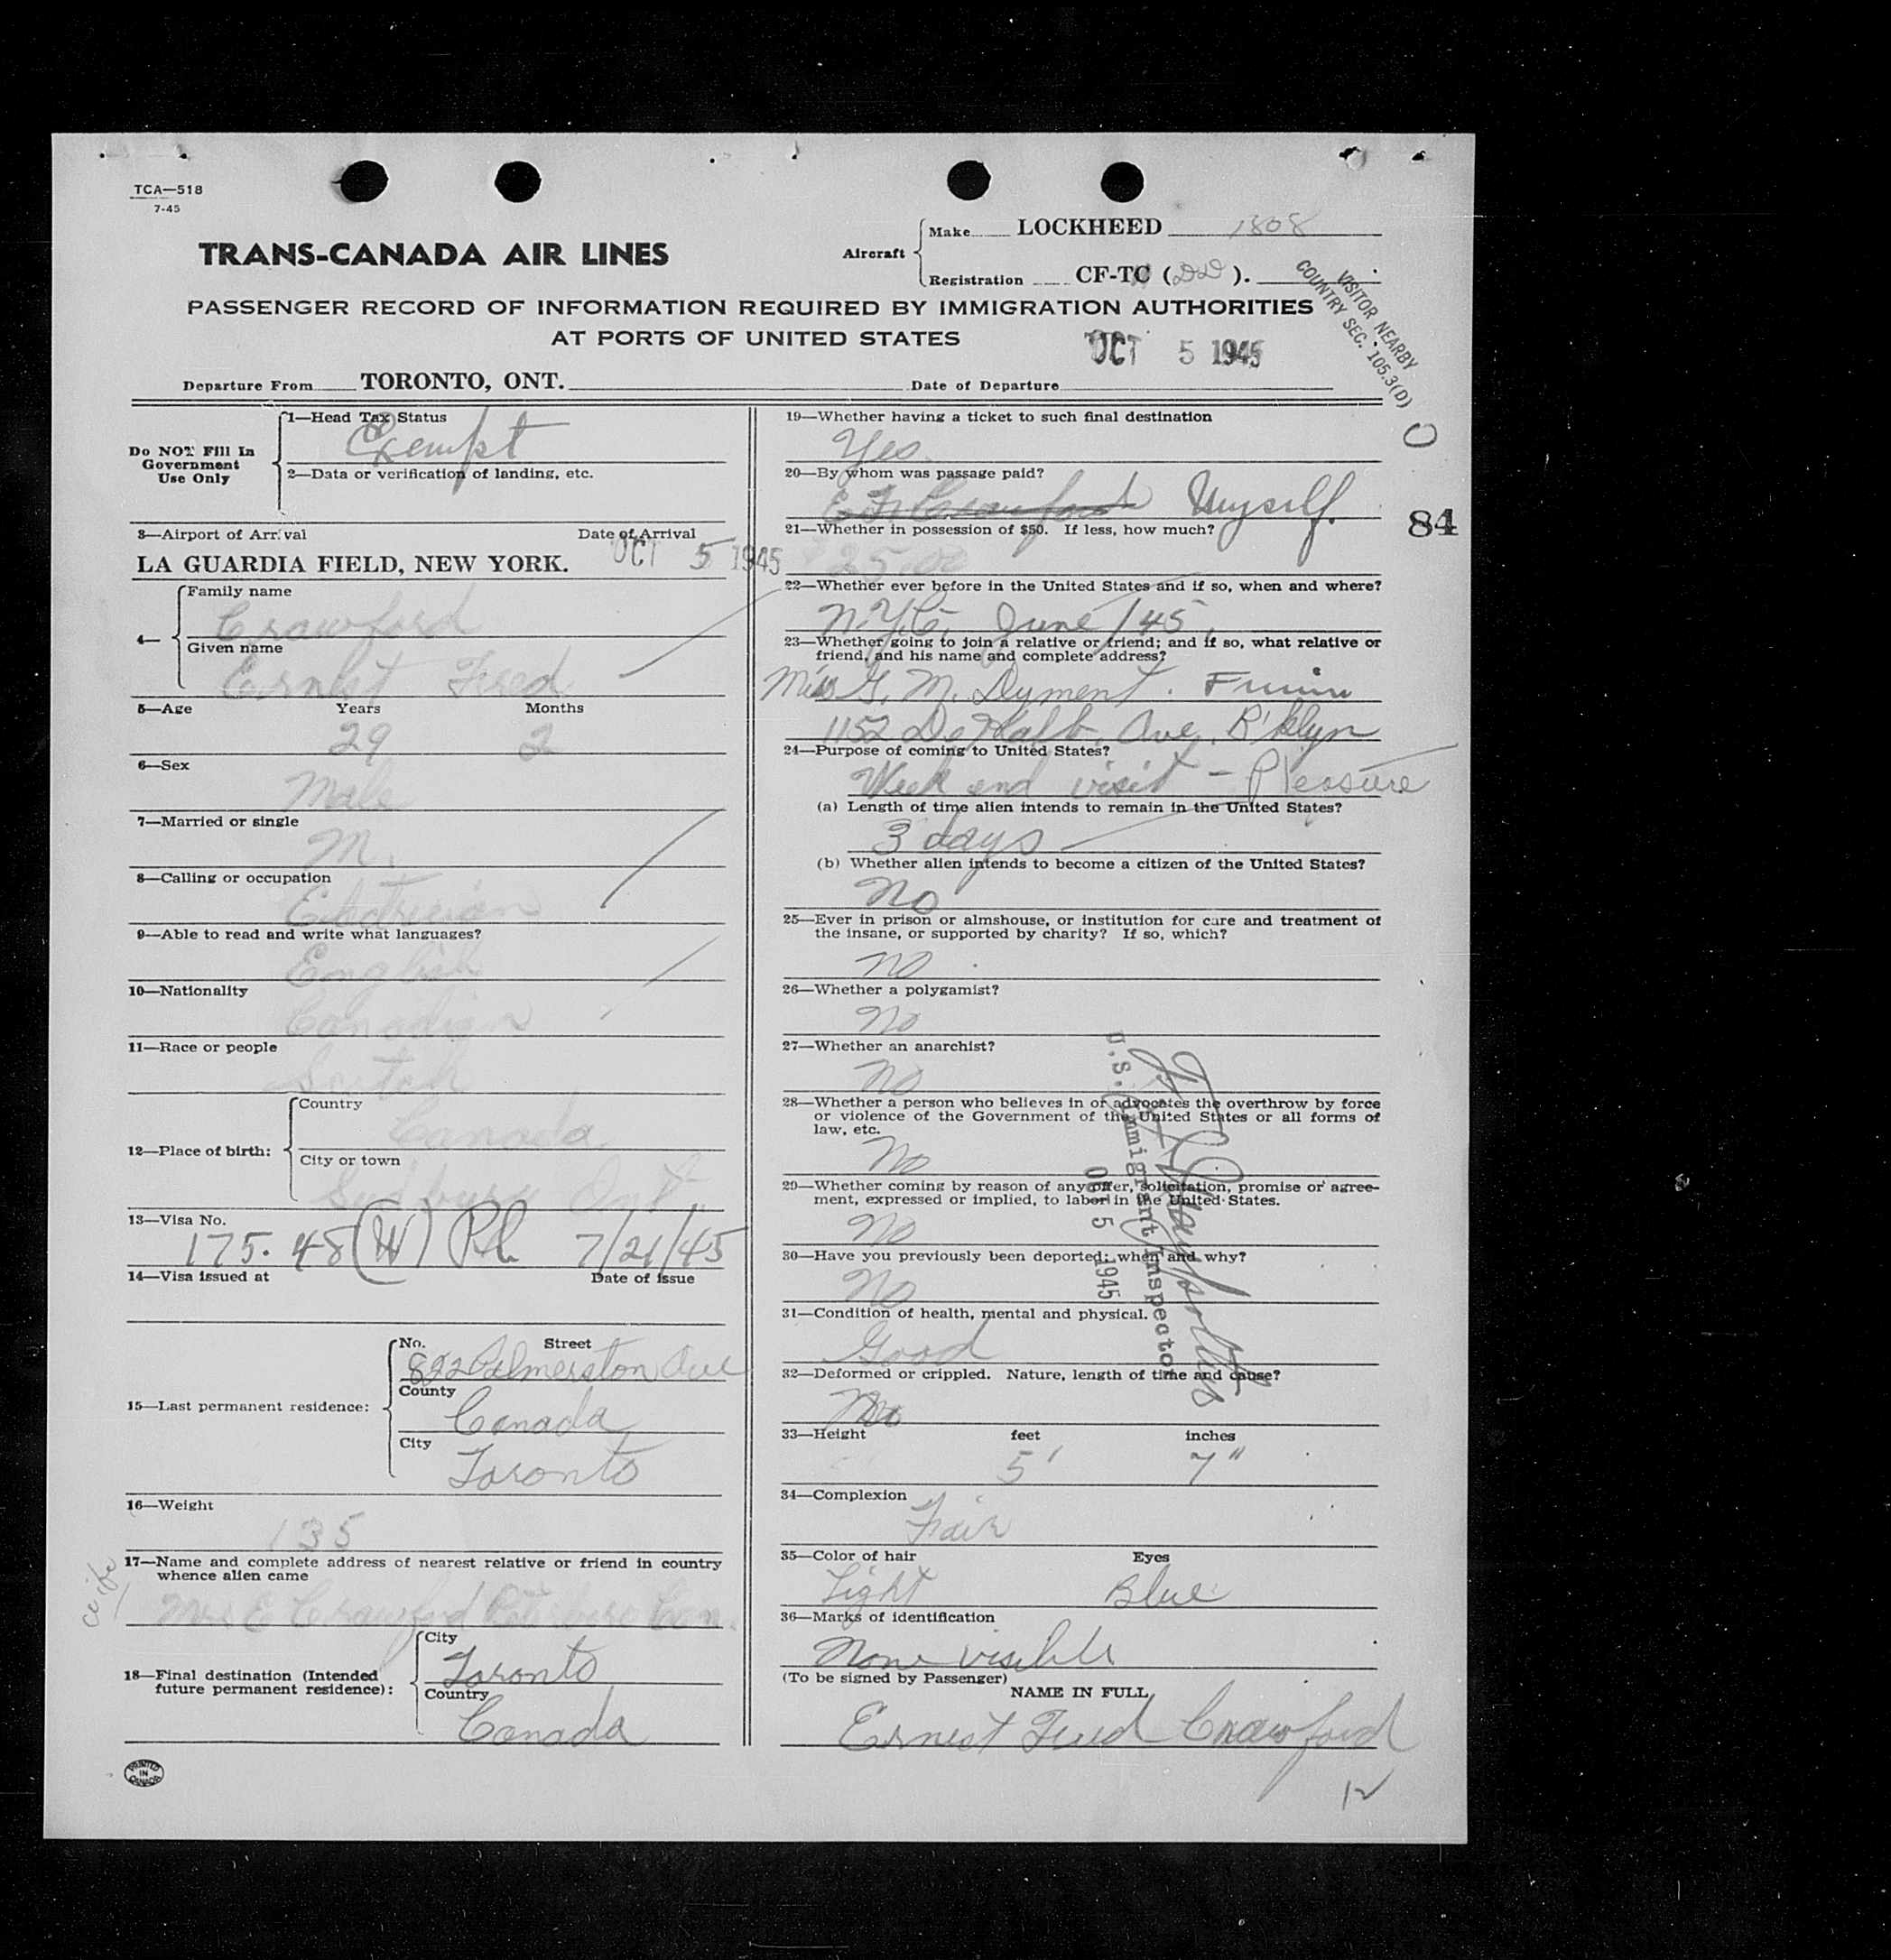 TCA—518
7-45
TRANS-CANADA AIR LINES
Aircraft
Make LOCKHEED 1808
Registration CF-TC (DD).
VISITOR NEARBY
COUNTRY SEC. 105.3(D)
PASSENGER RECORD OF INFORMATION REQUIRED BY IMMIGRATION AUTHORITIES
AT PORTS OF UNITED STATES
OCT 5 1945
Departure From TORONTO, ONT.
Date of Departure
Do NOT Fill In
Government
Use Only
1—Head Tax Status
Exempt
2—Data or verification of landing, etc.
3—Airport of Arrival
Date of Arrival
LA GUARDIA FIELD, NEW YORK.
OCT 5 1945
4—
Family name
Crawford
Given name
Ernest Fred
5—Age Years Months
29 2
6—Sex
Male
7—Married or single
M.
8—Calling or occupation
Electrician
9—Able to read and write what languages?
English
10—Nationality
Canadian
11—Race or people
Scotch
12—Place of birth:
Country
Canada
City or town
Ont.
13—Visa No.
175.48 (W) 7/21/45
14—Visa issued at
Date of issue
15—Last permanent residence:
No. Street
822 Palmerston Ave
County
Canada
City
Toronto
16—Weight
135
17—Name and complete address of nearest relative or friend in country
whence alien came
wife
Mrs E Crawford Can.
18—Final destination (Intended
future permanent residence):
City
Toronto
Country
Canada
PRINTED
IN
CANADA
19—Whether having a ticket to such final destination
Yes
O
20—By whom was passage paid?
E F Crawford Myself.
84
21—Whether in possession of $50. If less, how much?
$25.00
22—Whether ever before in the United States and if so, when and where?
N.Y.C. June /45
23—Whether going to join a relative or friend; and if so, what relative or
friend, and his name and complete address?
Miss G. M. Dyment.
1152 DeKalb. Ave. B'klyn
24—Purpose of coming to United States?
Week end visit - Pleasure
(a) Length of time alien intends to remain in the United States?
3 days
(b) Whether alien intends to become a citizen of the United States?
No
25—Ever in prison or almshouse, or institution for care and treatment of
the insane, or supported by charity? If so, which?
No
26—Whether a polygamist?
No
27—Whether an anarchist?
No
28—Whether a person who believes in or advocates the overthrow by force
or violence of the Government of the United States or all forms of
law, etc.
No
29—Whether coming by reason of any offer, solicitation, promise or agree-
ment, expressed or implied, to labor in the United States.
No
30—Have you previously been deported; when and why?
No
U.S. Immigrant Inspector
OCT 5 1945
31—Condition of health, mental and physical.
Good
32—Deformed or crippled. Nature, length of time and cause?
No
33—Height feet inches
5' 7"
34—Complexion
Fair
35—Color of hair Eyes
Light Blue
36—Marks of identification
None visible
(To be signed by Passenger)
NAME IN FULL
Ernest Fred Crawford
12